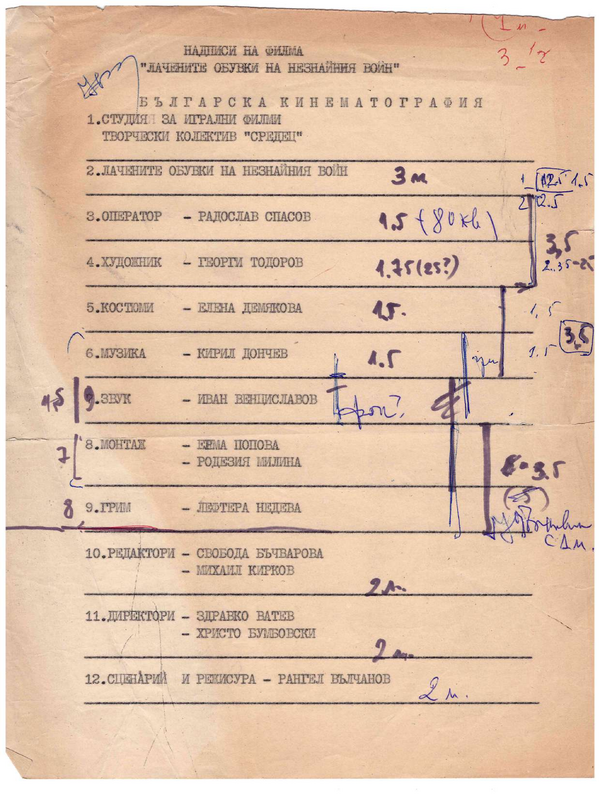 1 м.
3 - 1/2
НАДПИСИ НА ФИЛМА
"ЛАЧЕНИТЕ ОБУВКИ НА НЕЗНАЙНИЯ ВОЙН"
БЪЛГАРСКА КИНЕМАТОГРАФИЯ
1.СТУДИЯ ЗА ИГРАЛНИ ФИЛМИ
ТВОРЧЕСКИ КОЛЕКТИВ "СРЕДЕЦ"
2.ЛАЧЕНИТЕ ОБУВКИ НА НЕЗНАЙНИЯ ВОЙН 3 м
1 12.5 1.5
2 12.5
3.ОПЕРАТОР - РАДОСЛАВ СПАСОВ 1.5 (80 кв)
3,5
4.ХУДОЖНИК - ГЕОРГИ ТОДОРОВ 1.75 (25?)
2.35-25
5.КОСТЮМИ - ЕЛЕНА ДЕМЯКОВА 1,5. 1,5
3,5
6.МУЗИКА - КИРИЛ ДОНЧЕВ 1.5 1.5
1,5 9.ЗВУК - ИВАН ВЕНЦИСЛАВОВ
7 8.МОНТАЖ - ЕРМА ПОПОВА
- РОДЕЗИЯ МИЛИНА
3.5
8 9.ГРИМ - ЛЕФТЕРА НЕДЕВА
10.РЕДАКТОРИ - СВОБОДА БЪЧВАРОВА
- МИХАИЛ КИРКОВ
2 м.
11.ДИРЕКТОРИ - ЗДРАВКО ВАТЕВ
- ХРИСТО БУМБОВСКИ
2 м.
12.СЦЕНАРИЙ И РЕЖИСУРА - РАНГЕЛ ВЪЛЧАНОВ
2 м.